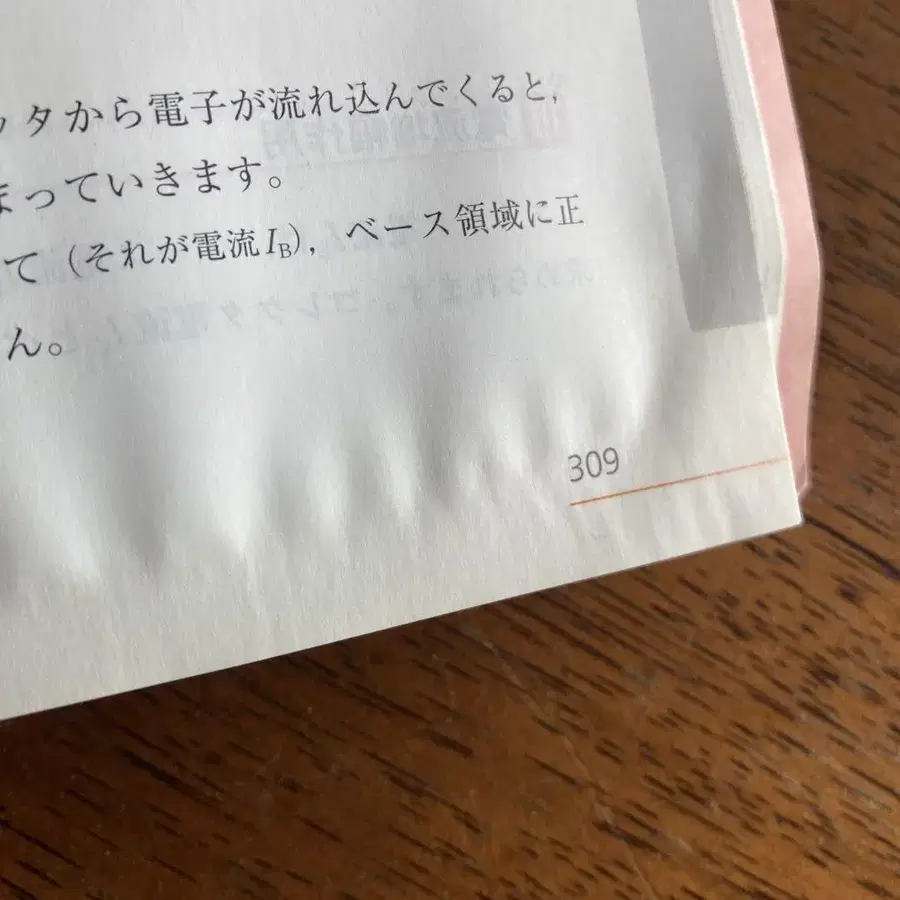 ッタから電子が流れ込んでくると,
まっていきます。
て(それが電流IB),ベース領域に正
ん。
309